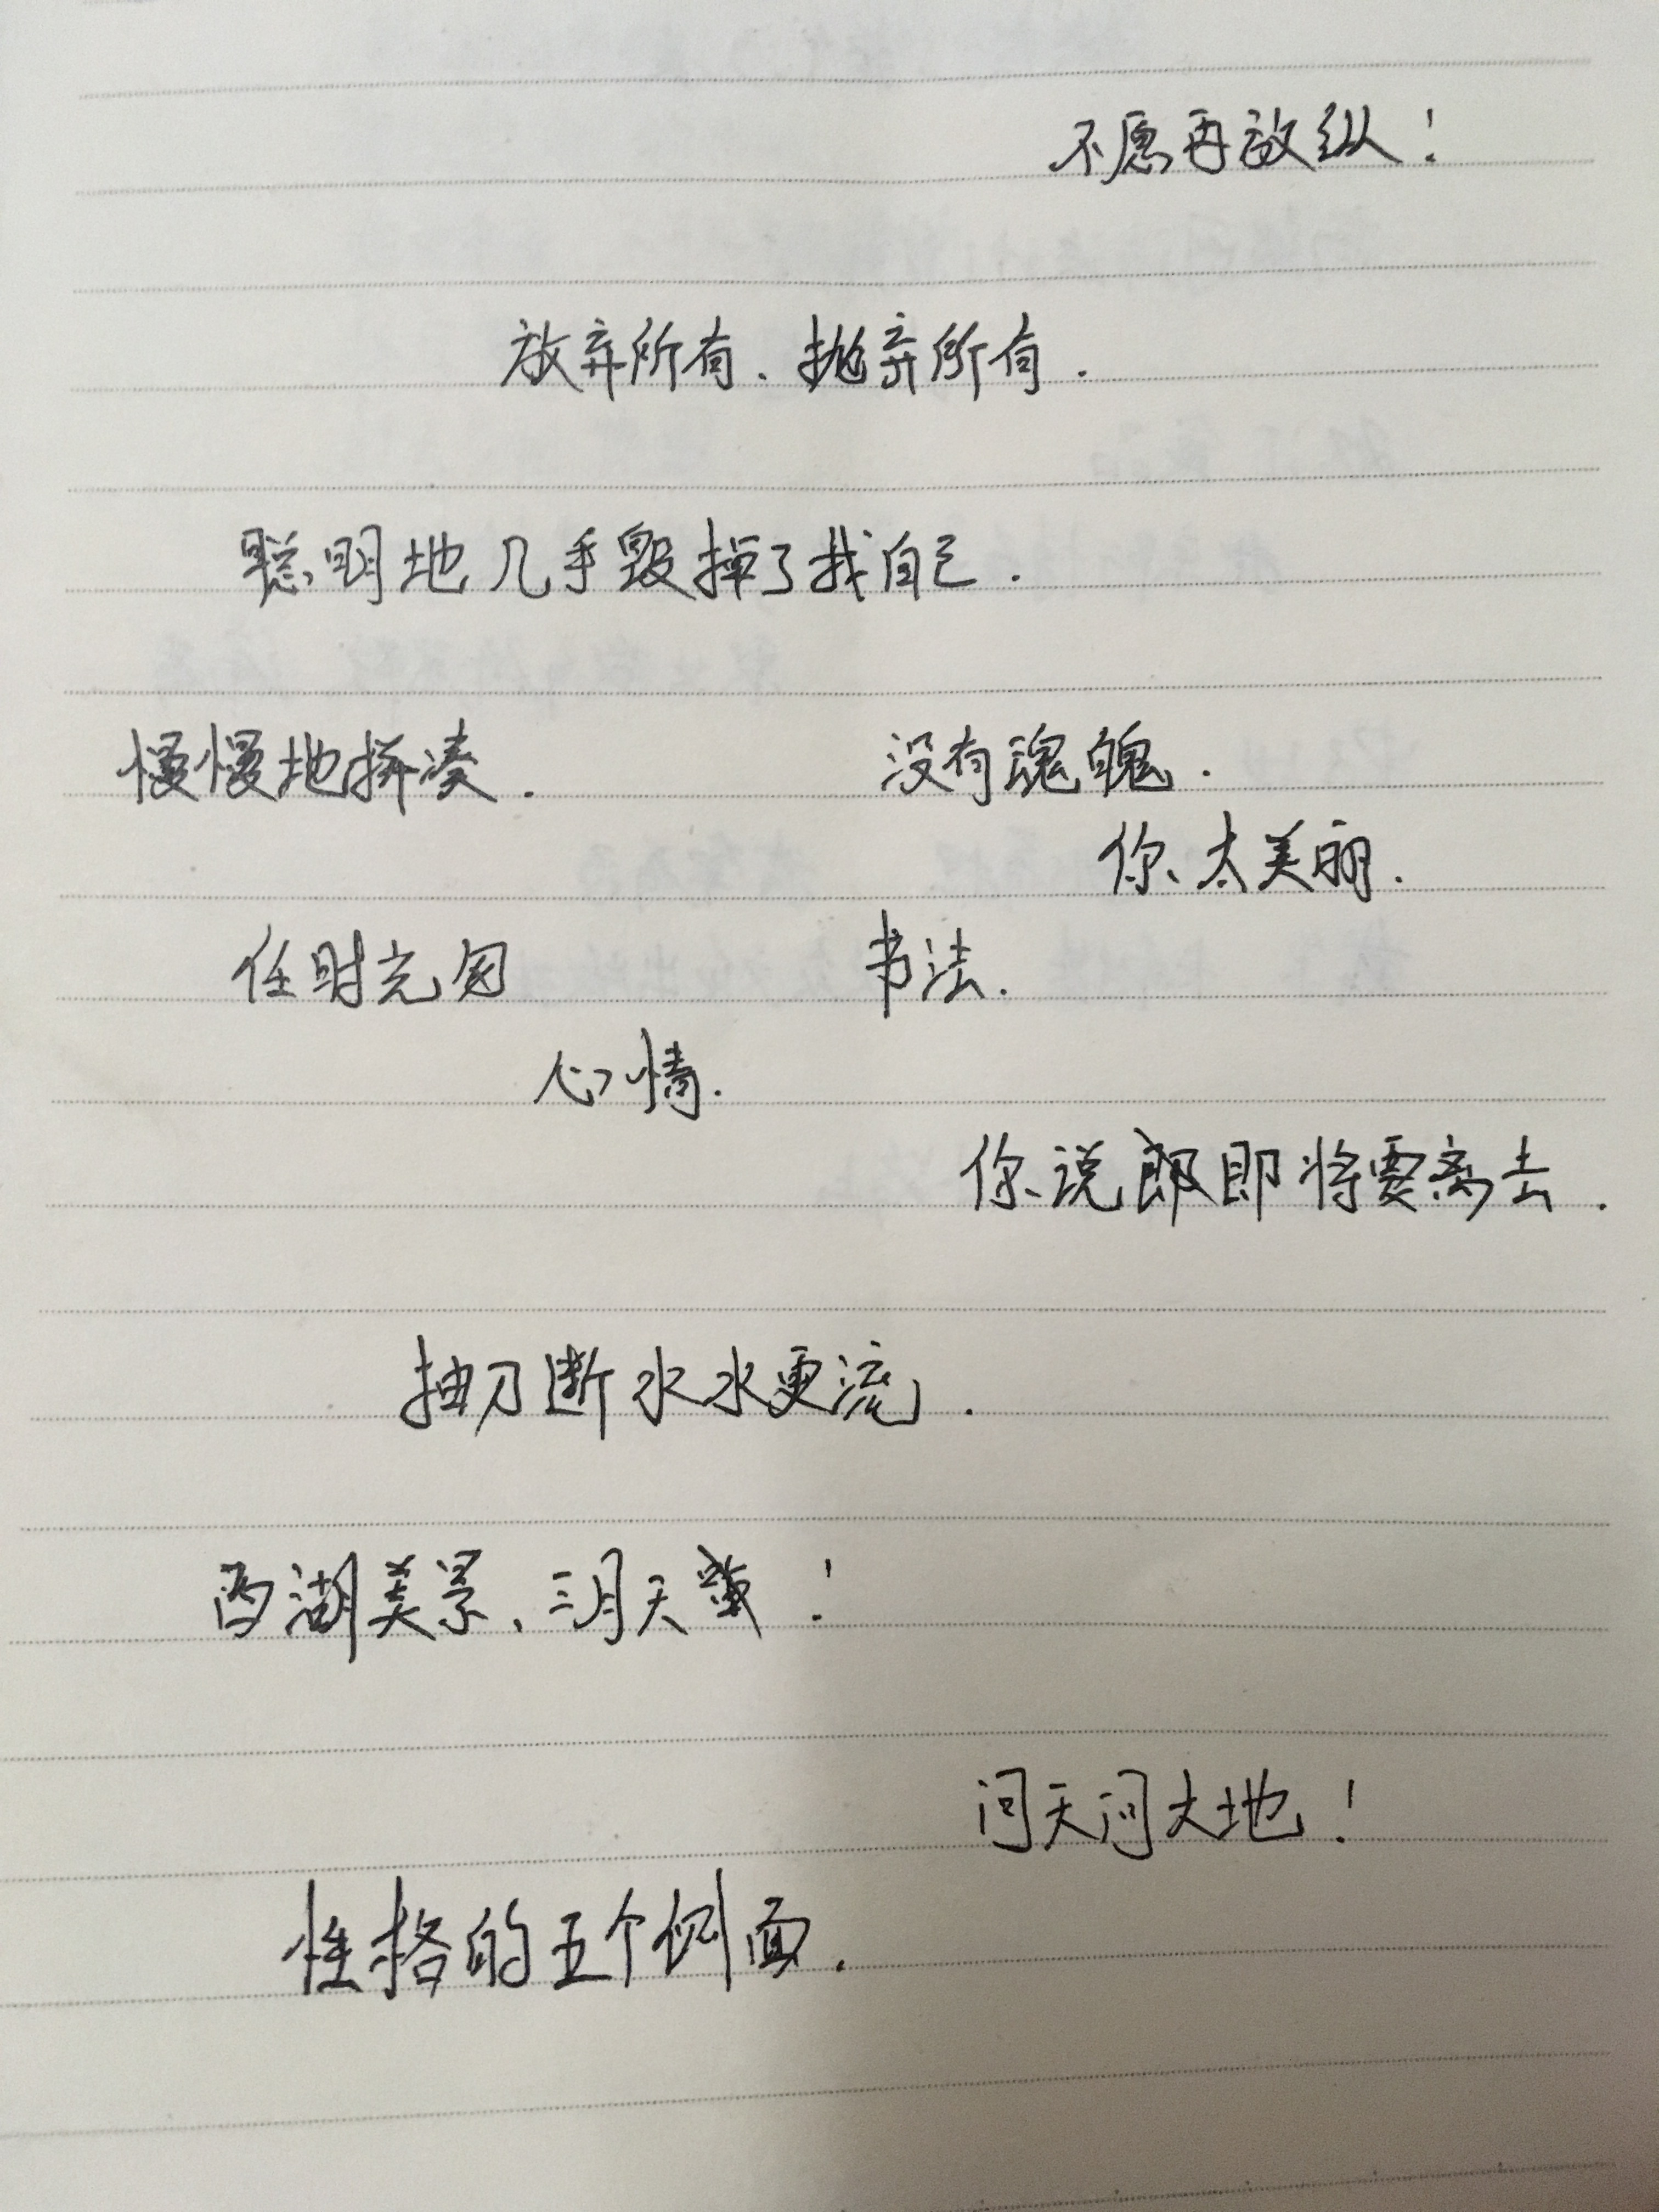 不愿再放纵!
放弃所有.抛弃所有.
聪明地几乎毁掉了我自己.
慢慢地拼凑. 没有魂魄.
你太美丽.
任时光匆 书法.
心情.
你说即将要离去.
抽刀断水水更流.
西湖美景,三月天!
问天问大地!
性格的五个侧面.